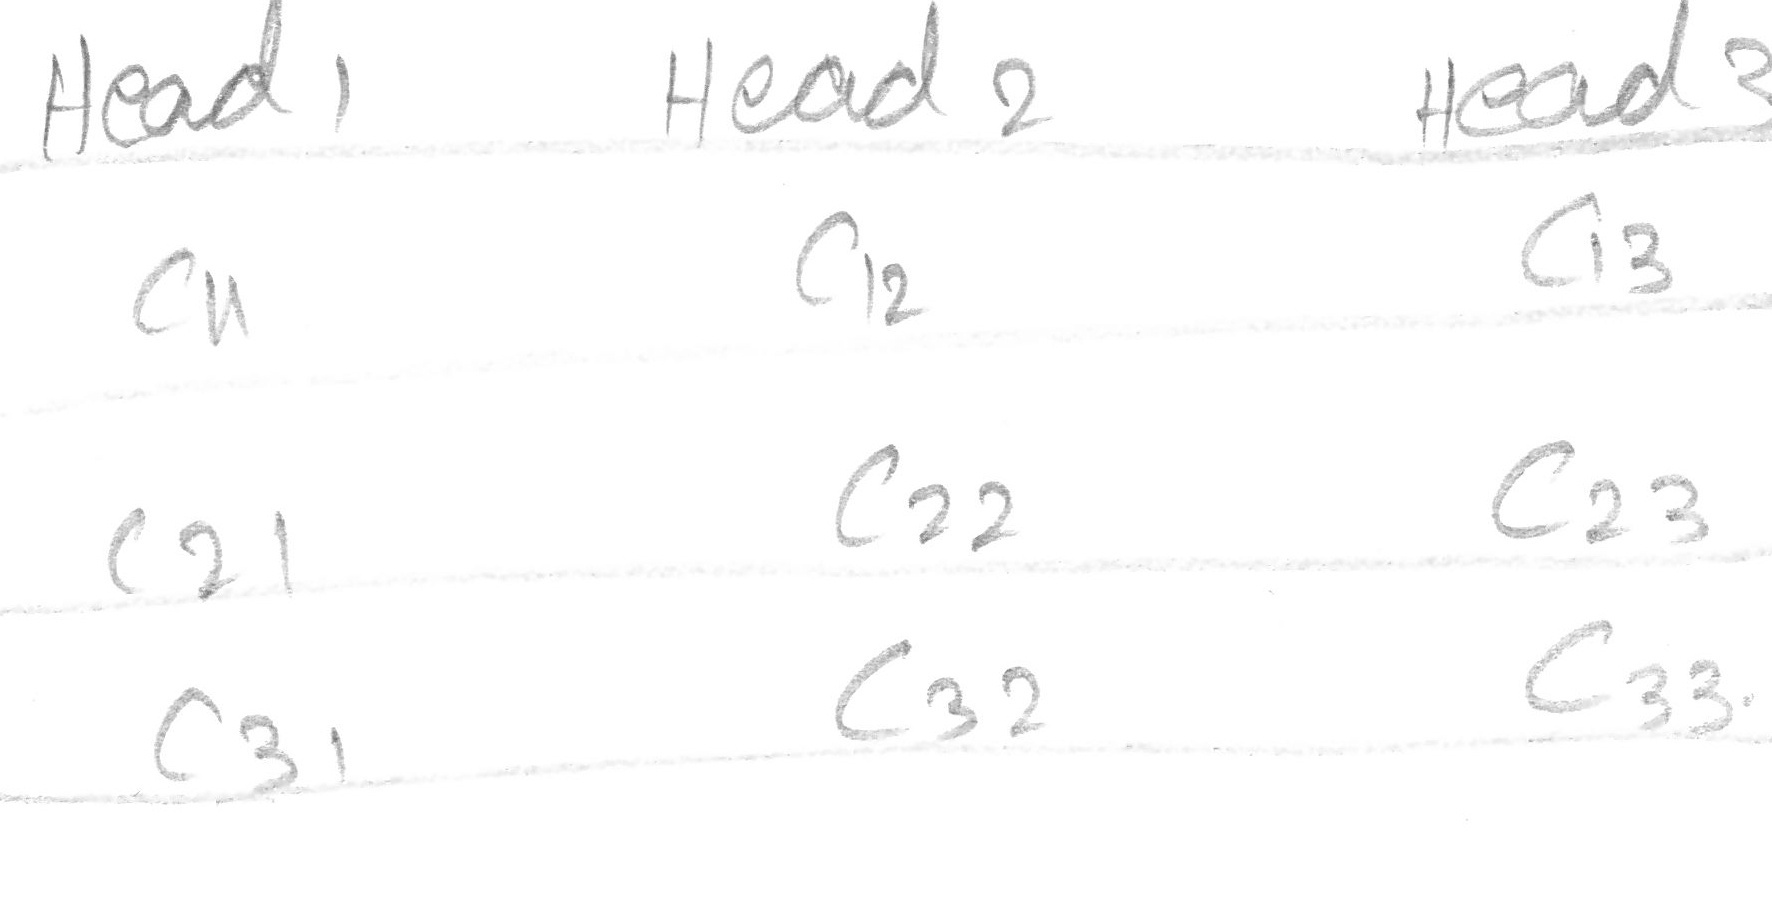 Head 1 Head 2 Head 3
C11 C12 C13
C21 C22 C23
C31 C32 C33.